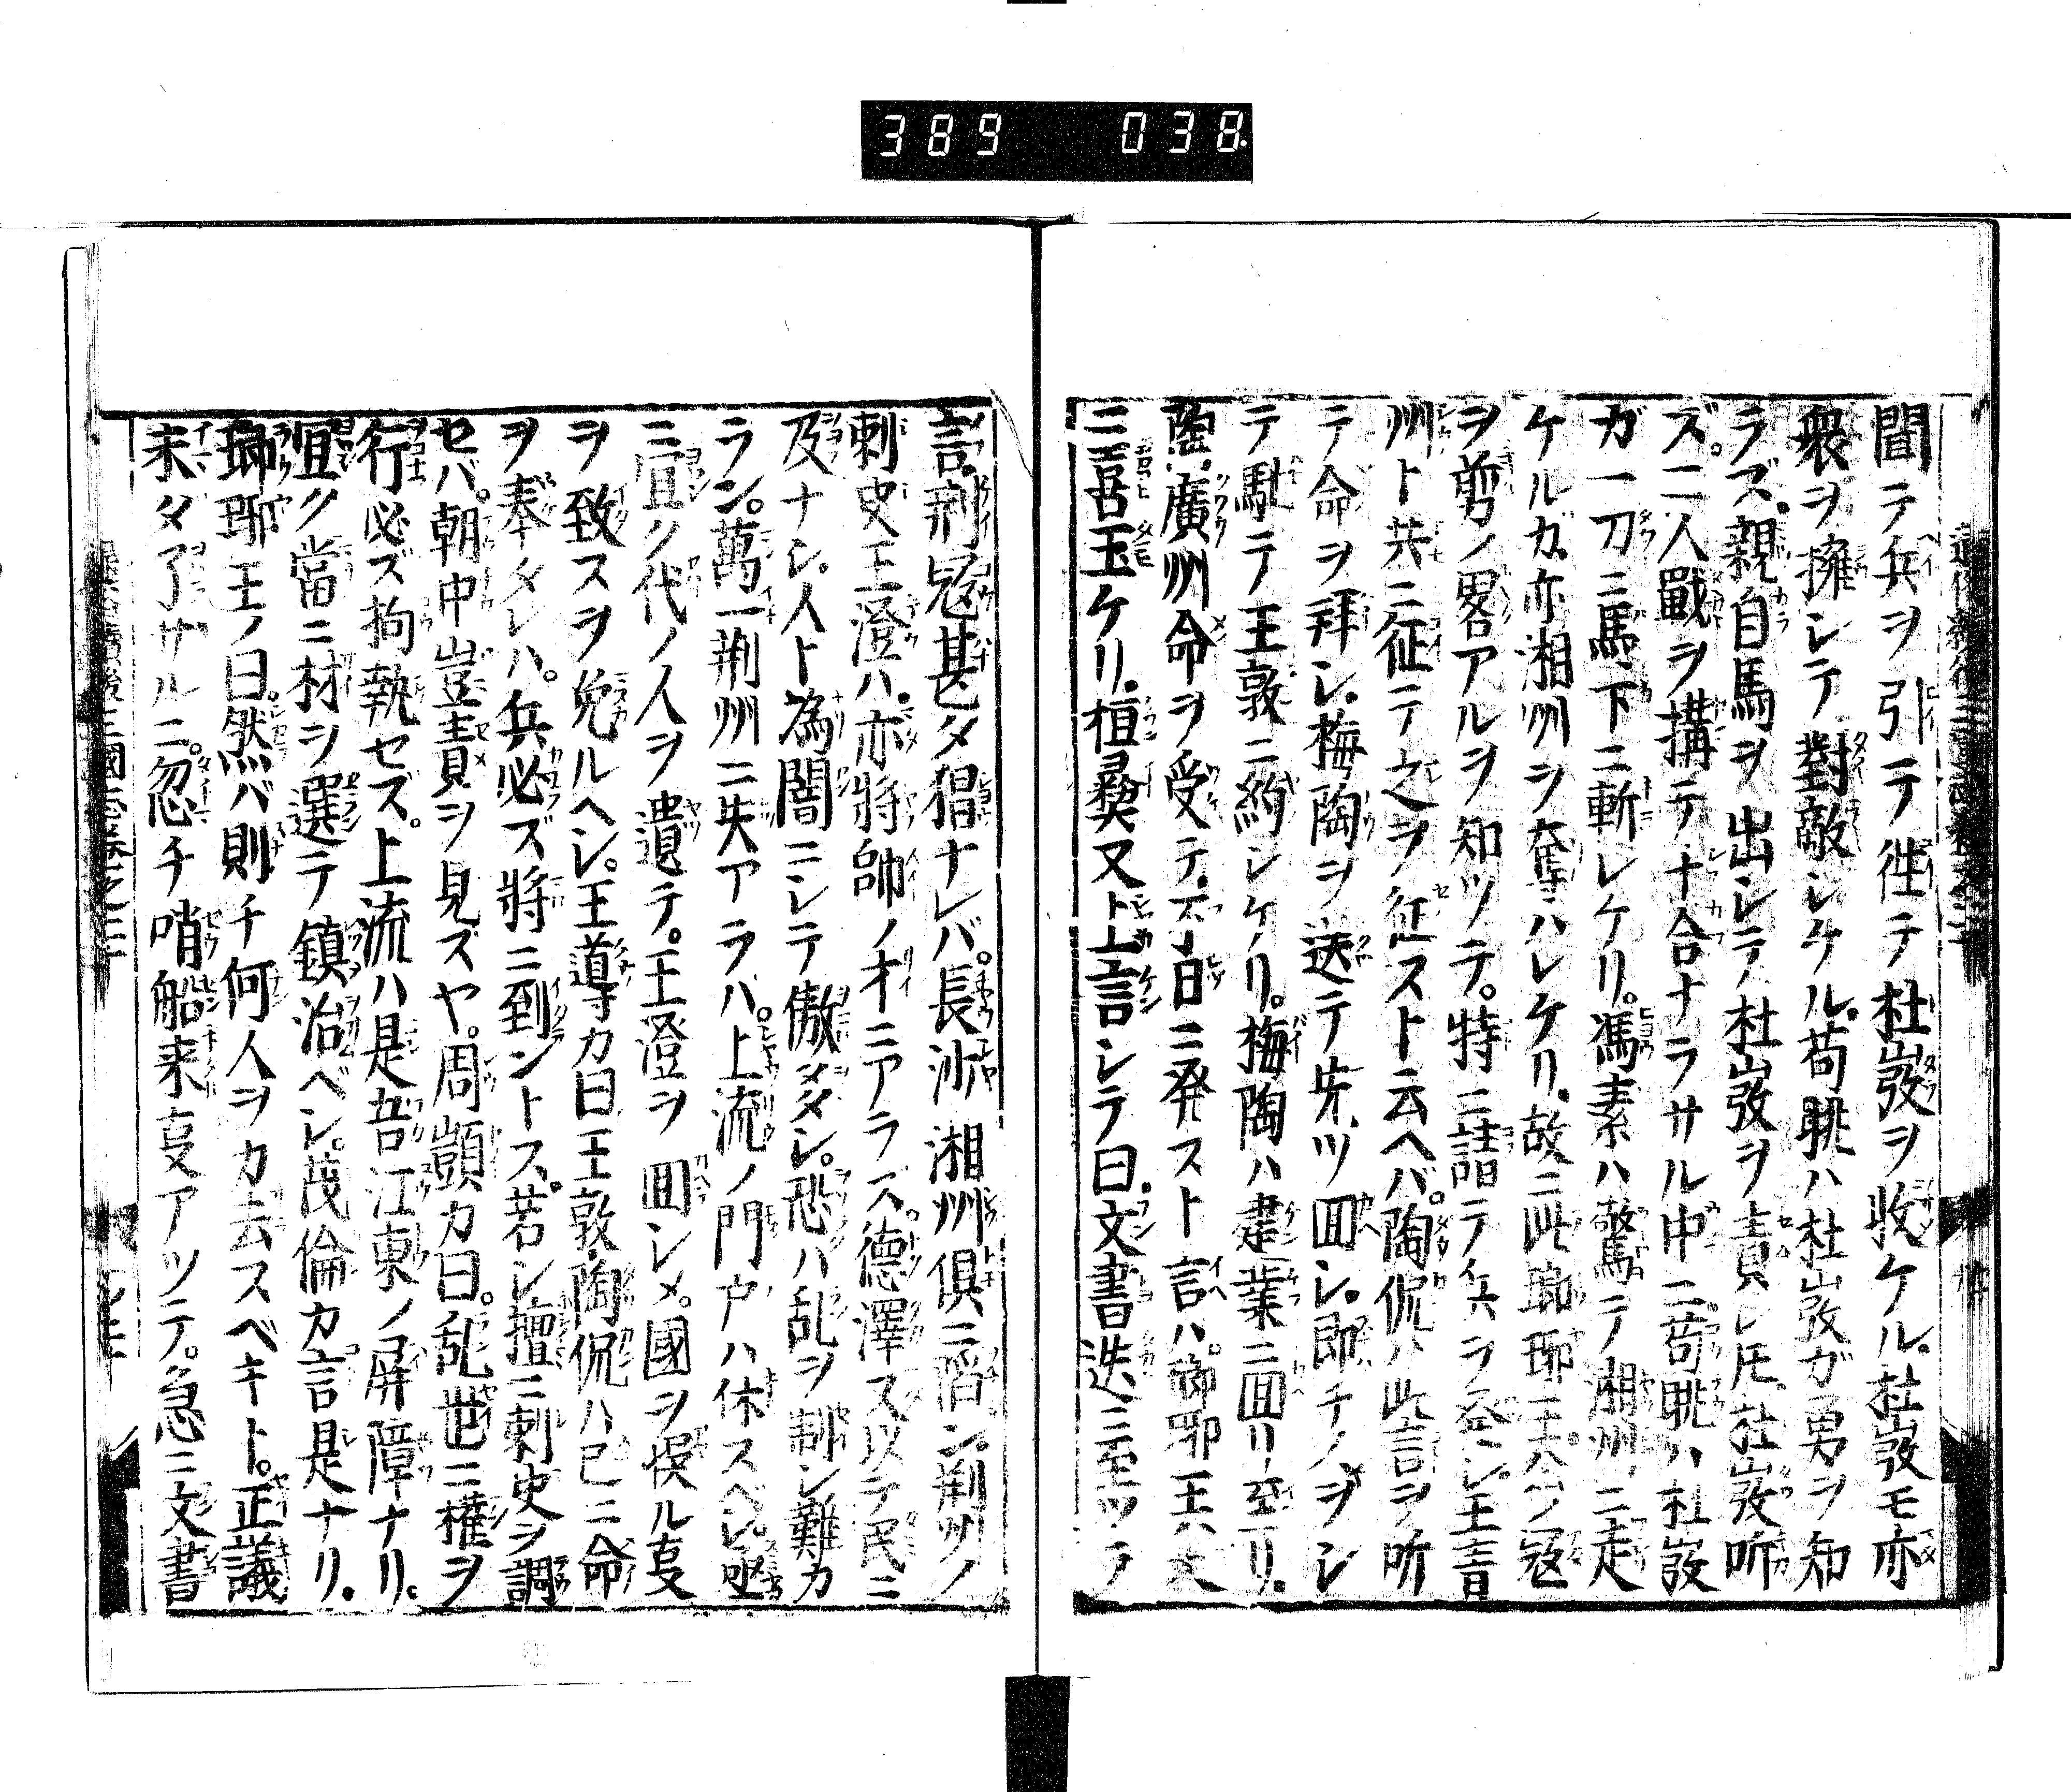 389 038
聞テ兵ヲ引テ徃テ杜弢ヲ收ケル杜弢モ亦
衆ヲ擁シテ對敵シケル荀眺ハ杜弢ガ勇ヲ知
ラズ親自馬ヲ出シテ杜弢ヲ責レ𪜈杜弢听
ズ二人戰ヲ搆テ十合ナラサル中ニ荀眺ハ杜弢
ガ一刀ニ馬下ニ斬レケリ馮素ハ驚テ湘州ニ走
ケルガ亦湘州ヲ奪ハレケリ故ニ此瑯琊王公ノ冦
ヲ剪ノ畧アルヲ知ツテ特ニ詣テ兵ヲ発シ王言
州ト共ニ征テ之ヲ征スト云ヘバ陶侃ハ此言ヲ听
テ命ヲ拜シ梅陶ヲ送テ先ツ回シ即チノヲシ
テ馳テ王敦ニ約シケリ梅陶ハ建業ニ回リ至リ
陶廣州命ヲ受テ不日ニ発スト言ハ瑯琊王ハ大
ニ喜玉ケリ桓彝又上言シテ曰文書迭ニ至ツテ
言荊冦甚タ猖ナレバ長沙湘州俱ニ陷シ荊州ノ
刺史王澄ハ亦將帥ノ才ニアラズ德澤ス以テ民ニ
及ナシ人ト為闇ニシテ傲メタシ恐ハ乱ヲ制シ難カ
ラン萬一荊州ニ失アラハ上流ノ門户ハ休スヘシ亟
ニ宜ク代ノ人ヲ遣テ王澄ヲ回シメ國ヲ悞ル㕝
ヲ致スヲ免ルヘシ王導カ曰王敦陶侃ハ已ニ命
ヲ奉タレハ兵必ズ將ニ到ントス若シ擅ニ刺史ヲ調
セバ朝中豈責ヲ見ズヤ周顗カ曰乱世ニ權ヲ
行必ズ拘執セズ上流ハ是吾江東ノ屏障ナリ
宜ク當ニ材ヲ選テ鎮治ベシ茂倫カ言是ナリ
瑯琊王ノ曰然バ則チ何人ヲカ去スベキト正議
未タ了サルニ忽チ哨船来㕝アツテ急ニ文書